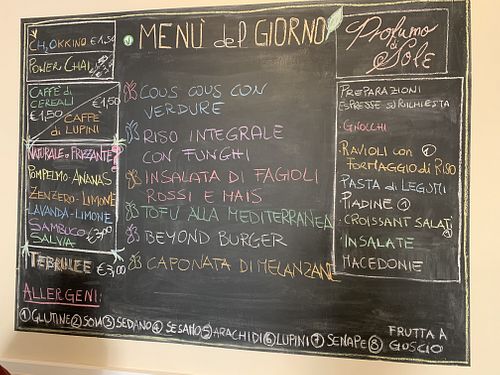 CH,OKKINO €1.50
POWER CHAI
CAFFÈ di
CEREALI
€1,50
€1,50
CAFFÈ
di LUPINI
NATURALE o FRIZZANTE?
POMPELMO-ANANAS
ZENZERO-LIMONE
LAVANDA-LIMONE
SAMBUCO
SALVIA
TEBRILEE €3,00
ALLERGENI:
MENÙ del GIORNO
COUS COUS CON
VERDURE
RISO INTEGRALE
CON FUNGHI
INSALATA DI FAGIOLI
ROSSI E MAIS
TOFU ALLA MEDITERRANEA
BEYOND BURGER
CAPONATA DI MELANZANE
Profumo
di
Sole
PREPARAZIONI
ESPRESSE SU RICHIESTA
GNOCCHI
RAVIOLI con ①
FORMAGGIO di RISO
PASTA di LEGUMI
PIADINE ①
CROISSANT SALATI
INSALATE
MACEDONIE
①GLUTINE ②SOIA ③SEDANO ④SESAMO ⑤ARACHIDI ⑥LUPINI ⑦SENAPE ⑧FRUTTA A
GUSCIO